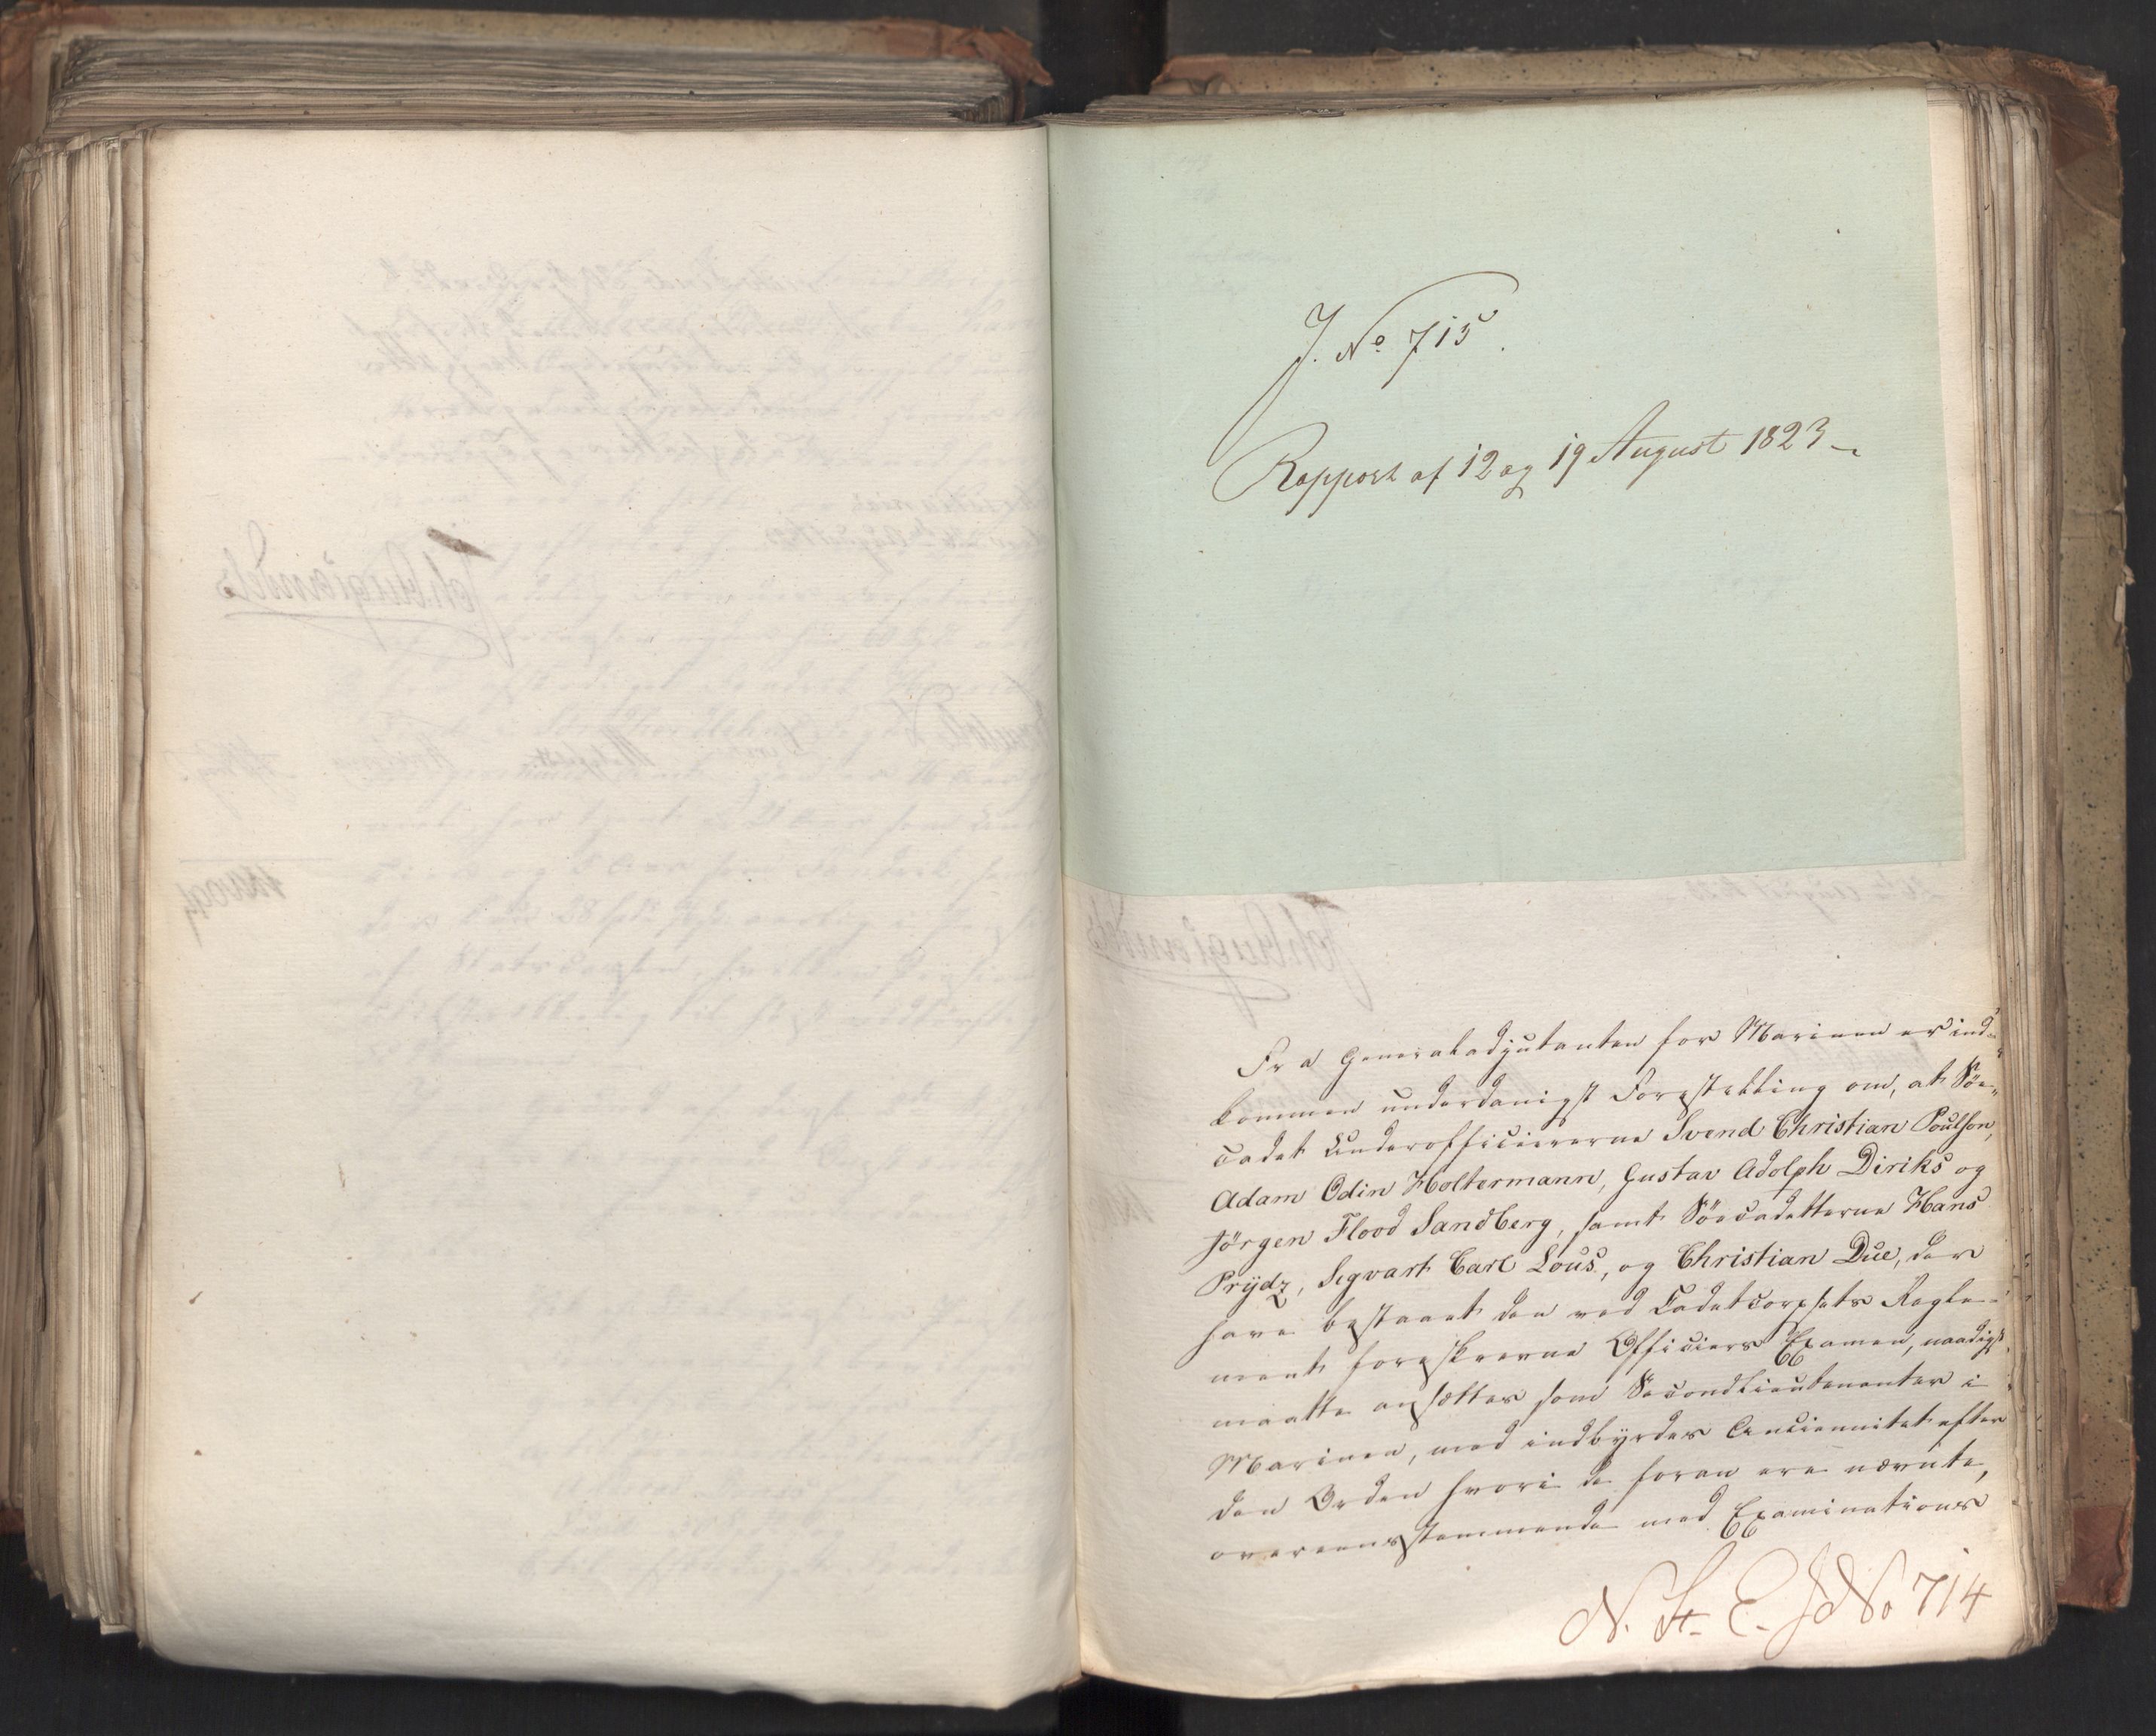 J. No 715.
Rapport af 12 og 19 August 1823
Fra Generaladjutanten for Marinen er ind-
kommen underdanigst Forestilling om, at Söe-
cadet Underofficiererne Svend Christian Poulson,
Adam Odin Holtermann, Gustav Adolph Diriks og
Jörgen Flood Sandberg, samt Söecadetterne Hans
Prydz, Segvart Carl Lous, og Christian Due, der
have bestaaet den ved Cadetcorpsets Regle-
ment foreskrevne Officiers Examen, naadigst
maatte ansættes som Secondlieutenanter i
Marinen, med indbyrdes Anciennitet efter
den Orden hvori de foran ere nævnte,
overeensstemmende med Examinations
N. St. E. J No 714